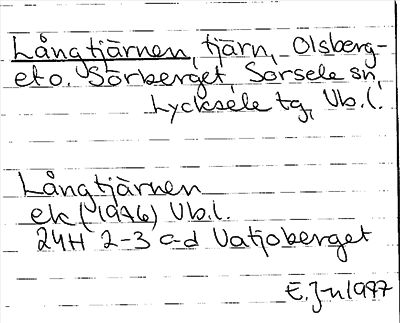 Långtjärnen, tjärn, Olsberg-
et o. Sörberget, Sorsele sn,
Lycksele tg, Vb.l.
Långtjärnen
ek (1946) Vb.l.
24H 2-3 c-d Vatjoberget
E. J-n 1977